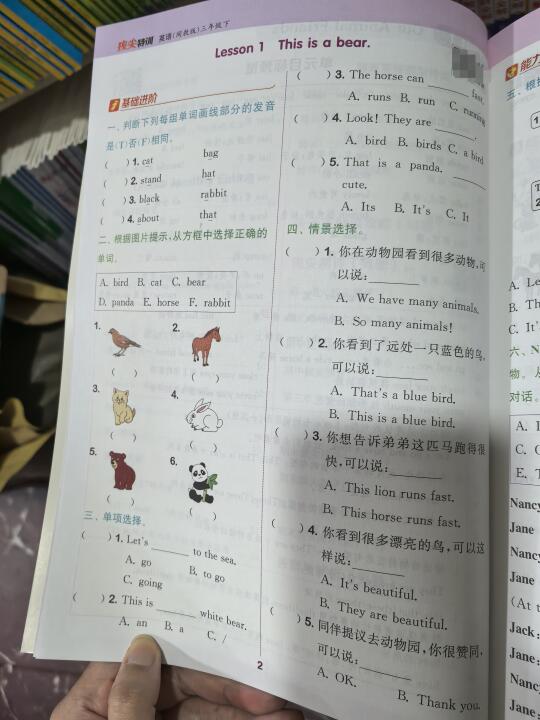 拔尖特训 英语(闽教版)三年级下
Lesson 1 This is a bear.
基础进阶
一、判断下列每组单词画线部分的发音
是(T)否(F)相同。
( ) 1. cat bag
( ) 2. stand hat
( ) 3. black rabbit
( ) 4. about that
二、根据图片提示,从方框中选择正确的
单词。
A. bird B. cat C. bear
D. panda E. horse F. rabbit
1. 2.
( ) ( )
3. 4.
( ) ( )
5. 6.
( ) ( )
三、单项选择。
( ) 1. Let's ______ to the sea.
A. go B. to go
C. going
( ) 2. This is ______ white bear.
A. an B. a C. /
( ) 3. The horse can ______ fast.
A. runs B. run C. running
( ) 4. Look! They are ______.
A. bird B. birds C. a bird
( ) 5. That is a panda. ______
cute.
A. Its B. It's C. It
四、情景选择。
( ) 1. 你在动物园看到很多动物,可
以说:______
A. We have many animals.
B. So many animals!
( ) 2. 你看到了远处一只蓝色的鸟,
可以说:______
A. That's a blue bird.
B. This is a blue bird.
( ) 3. 你想告诉弟弟这匹马跑得很
快,可以说:______
A. This lion runs fast.
B. This horse runs fast.
( ) 4. 你看到很多漂亮的鸟,可以这
样说:______
A. It's beautiful.
B. They are beautiful.
( ) 5. 同伴提议去动物园,你很赞同,
可以说:______
A. OK. B. Thank you.
2
能力
五、根据
1
2
A. L
B. Th
C. It'
六、N
物。从
对话。
A. I
C.
E.
Nancy
Jane
Nancy
Jane
(At t
Jack:
Jane
Nancy
Jane